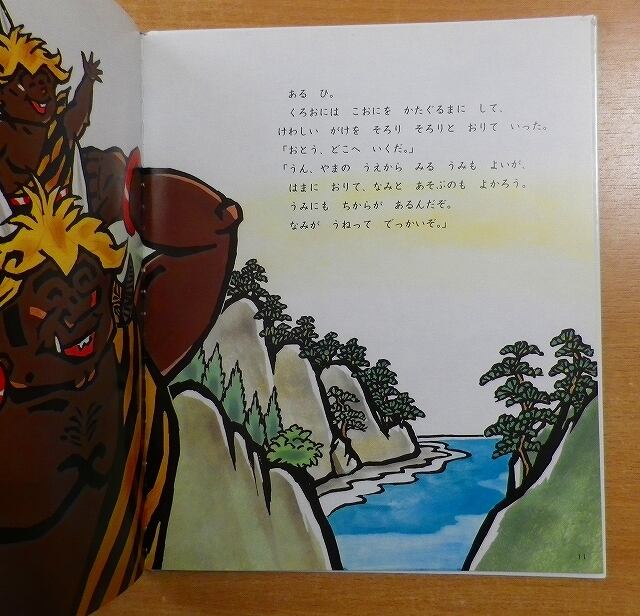 ある　ひ。
くろおには　こおにを　かたぐるまに　して、
けわしい　がけを　そろり　そろりと　おりて　いった。
「おとう、どこへ　いくだ。」
「うん、やまの　うえから　みる　うみも　よいが、
はまに　おりて、なみと　あそぶのも　よかろう。
うみにも　ちからが　あるんだぞ。
なみが　うねって　でっかいぞ。」
11